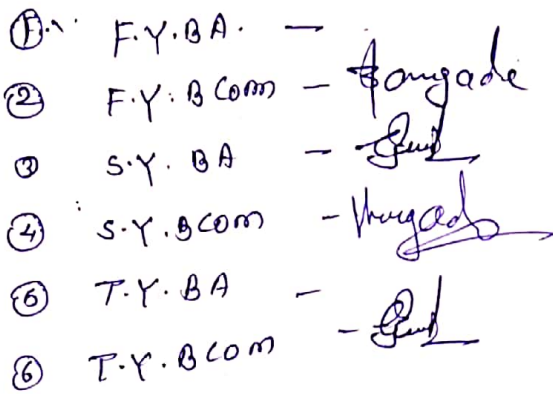 ① F.Y.BA. —
② F.Y.BCOM —
③ S.Y.BA —
④ S.Y.BCOM -
⑤ T.Y.BA —
⑥ T.Y.BCOM -